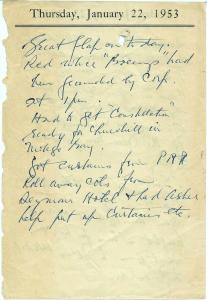 Thursday, January 22, 1953
Great flap on today,
Red White " Boeings had
been grounded by Corp.
at 1 pm.
Had to get Constellation
ready for Churchill in
Montego Bay.
Got curtains from P.A.A
Roll away cots from
Seymour Hotel & had Asher
help put up curtains etc.